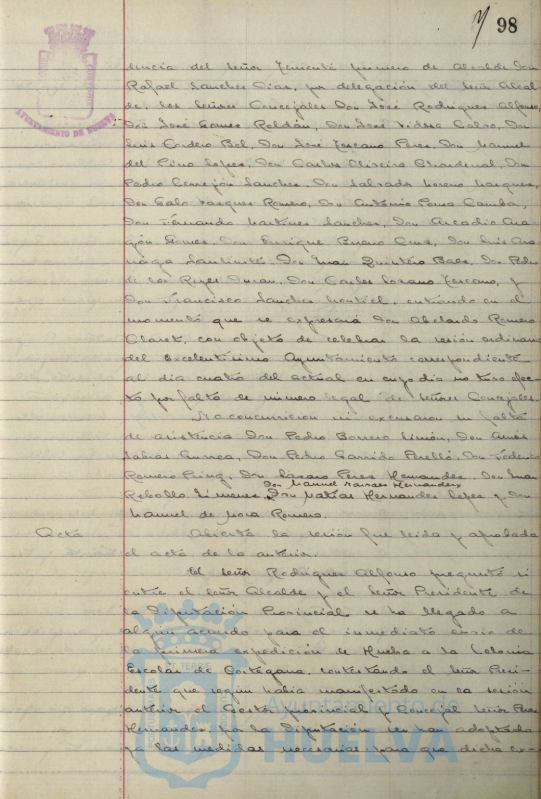 98
AYUNTAMIENTO DE HUELVA
dencia del Señor Teniente primero de Alcalde Don
Rafael Sanchez Diaz, por delegación del Señor Alcal-
de, los Señores Concejales Don José Rodriguez Alfonso,
Don José Gomez Roldán, Don José Vidosa Calvo, Don
Luis Cordero Bel, Don José Toscano Perez, Don Manuel
del Pino Lopez, Don Carlos Oliveira Chardenal, Don
Pedro Cerrejón Sanchez, Don Salvador Moreno Marquez,
Don Galo Vazquez Romero, Don Antonio Pousa Camba,
Don Fernando Martinez Sanchez, Don Arcadio Ara-
gón Gomez, Don Enrique Bueno Cruz, Don Luis
Don Juan Quintero Baez, Don Pedro
de los Reyes Durán, Don Carlos Lozano Toscano, y
Don Francisco Sanchez Montiel, entrando en el
momento que se expresará Don Abelardo Romero
Claret, con objeto de celebrar la sesión ordinaria
del Excelentísimo Ayuntamiento correspondiente
al dia cuatro del actual en cuyo dia no tuvo efec-
to por falta de número legal de Señores Concejales.
No concurrieron ni excusaron su falta
de asistencia Don Pedro Borrero Limón, Don Amós
Sabras Gurrea, Don Pedro Garrido Perelló, Don Federico
Romero Don Lazaro Perez Hernandez, Don Juan
Don Manuel Hernandez
Rebollo Jimenez, Don Matías Hernandez Lopez y Don
Manuel de Mora Romero.
Acta Abierta la sesión fue leida y aprobada
el acta de la anterior.
El Señor Rodriguez Alfonso preguntó si
entre el Señor Alcalde y el Señor Presidente de
la Diputación Provincial se ha llegado a
algún acuerdo para el inmediato envio de
la primera expedición de Huelva a la Colonia
Escolar de Cortegana, contestando el Señor Presi-
dente que segun habia manifestado en la sesión
anterior el Gestor provincial y Concejal Señor Perez
Hernandez, por la Diputación se han adoptado
ya las medidas necesarias para que dicha ex-
Ayuntamiento de
HUELVA